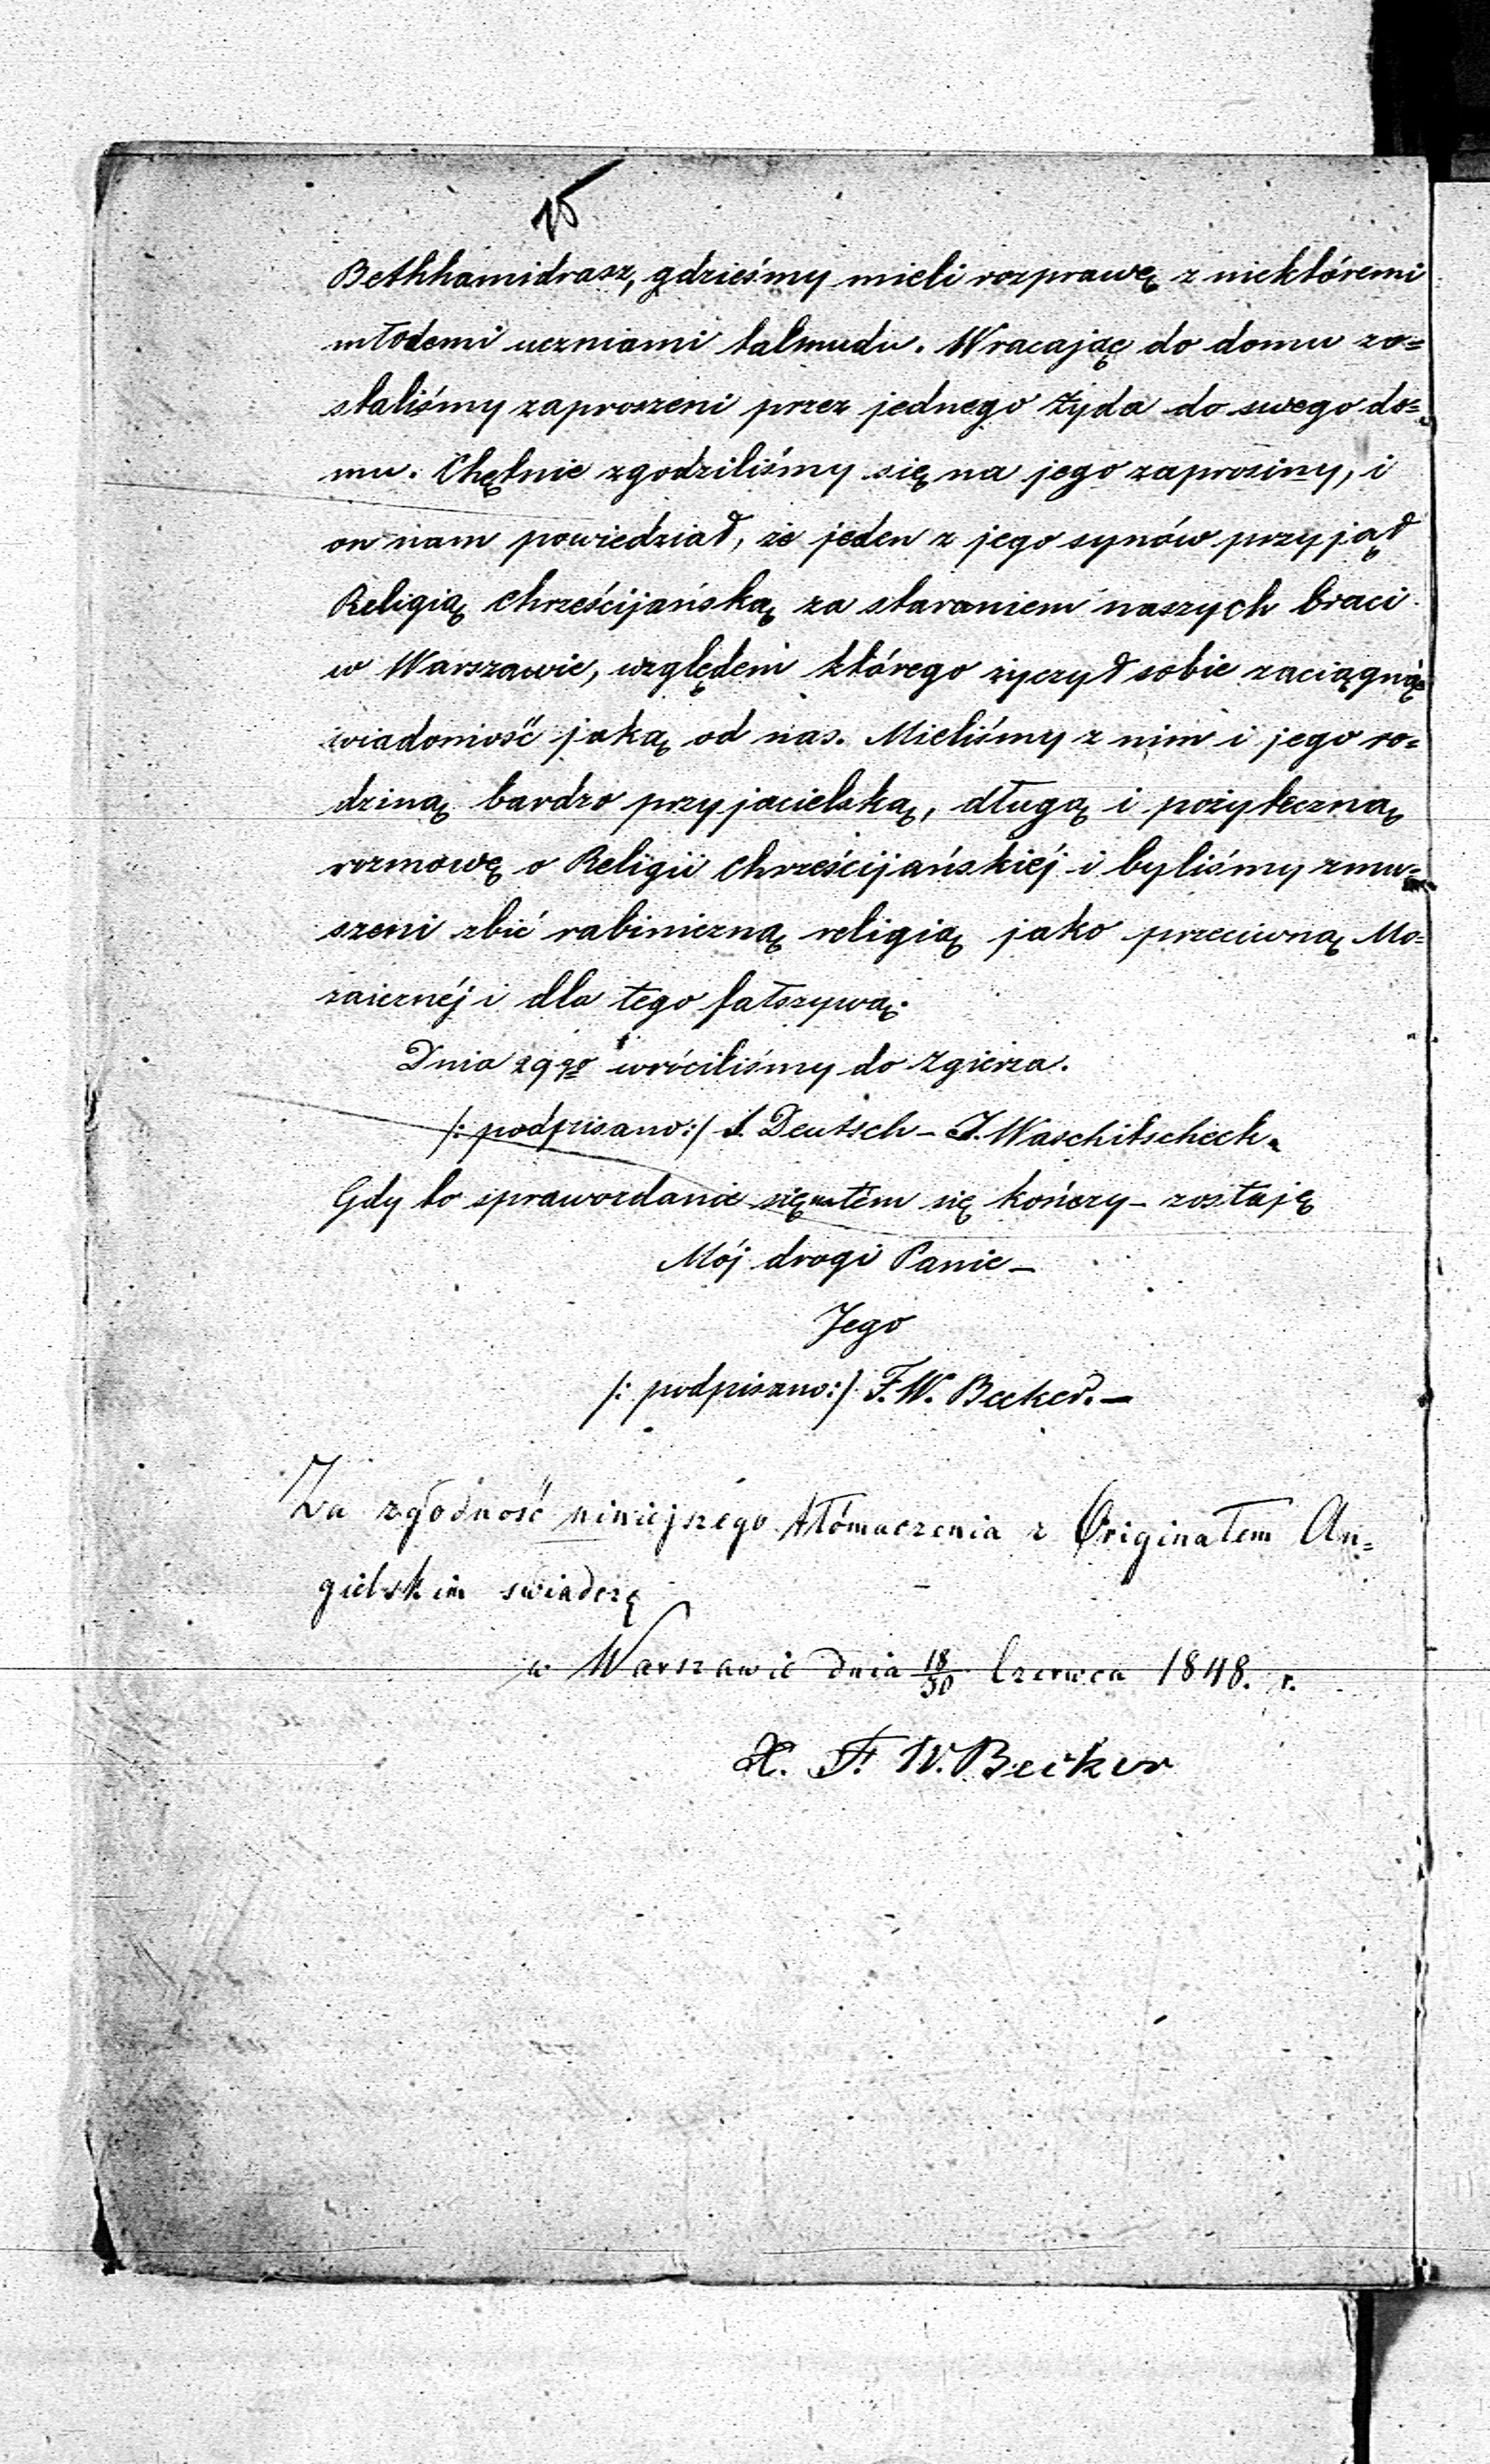 15
Bethhamidrasz, gdzieśmy mieli rozprawę z niektóremi
młodemi uczniami talmudu. Wracając do domu zo=
staliśmy zaproszeni przez jednego Żyda do swego do=
mu. Chętnie zgodziliśmy się na jego zaprosiny, i
on nam powiedział, że jeden z jego synów przyjął
Religią chrześcijańską za staraniem naszych braci
w Warszawie, względem którego życzył sobie zaciągnąć
wiadomość jaką od nas. Mieliśmy z nim i jego ro=
dziną bardzo przyjacielską, długą i pożyteczną
rozmowę o Religii chrześcijańskiéj i byliśmy zmu=
szeni zbić rabiniczną religią jako przeciwną Mo=
zaicznéj i dla tego fałszywą.
Dnia 29go wróciliśmy do Zgierza.
/: podpisano:/ S. Deutsch – J. Waschitscheck.
Gdy to sprawozdanie się na tém się kończy – zostaję
Mój drogi Panie –
Jego
/: podpisano:/ F. W. Becker. –
Za zgodność niniejszego tłómaczenia z Originałem An=
gielskim swiadczę
w Warszawie dnia 18/30 Czerwca 1848. r.
X. F. W. Becker